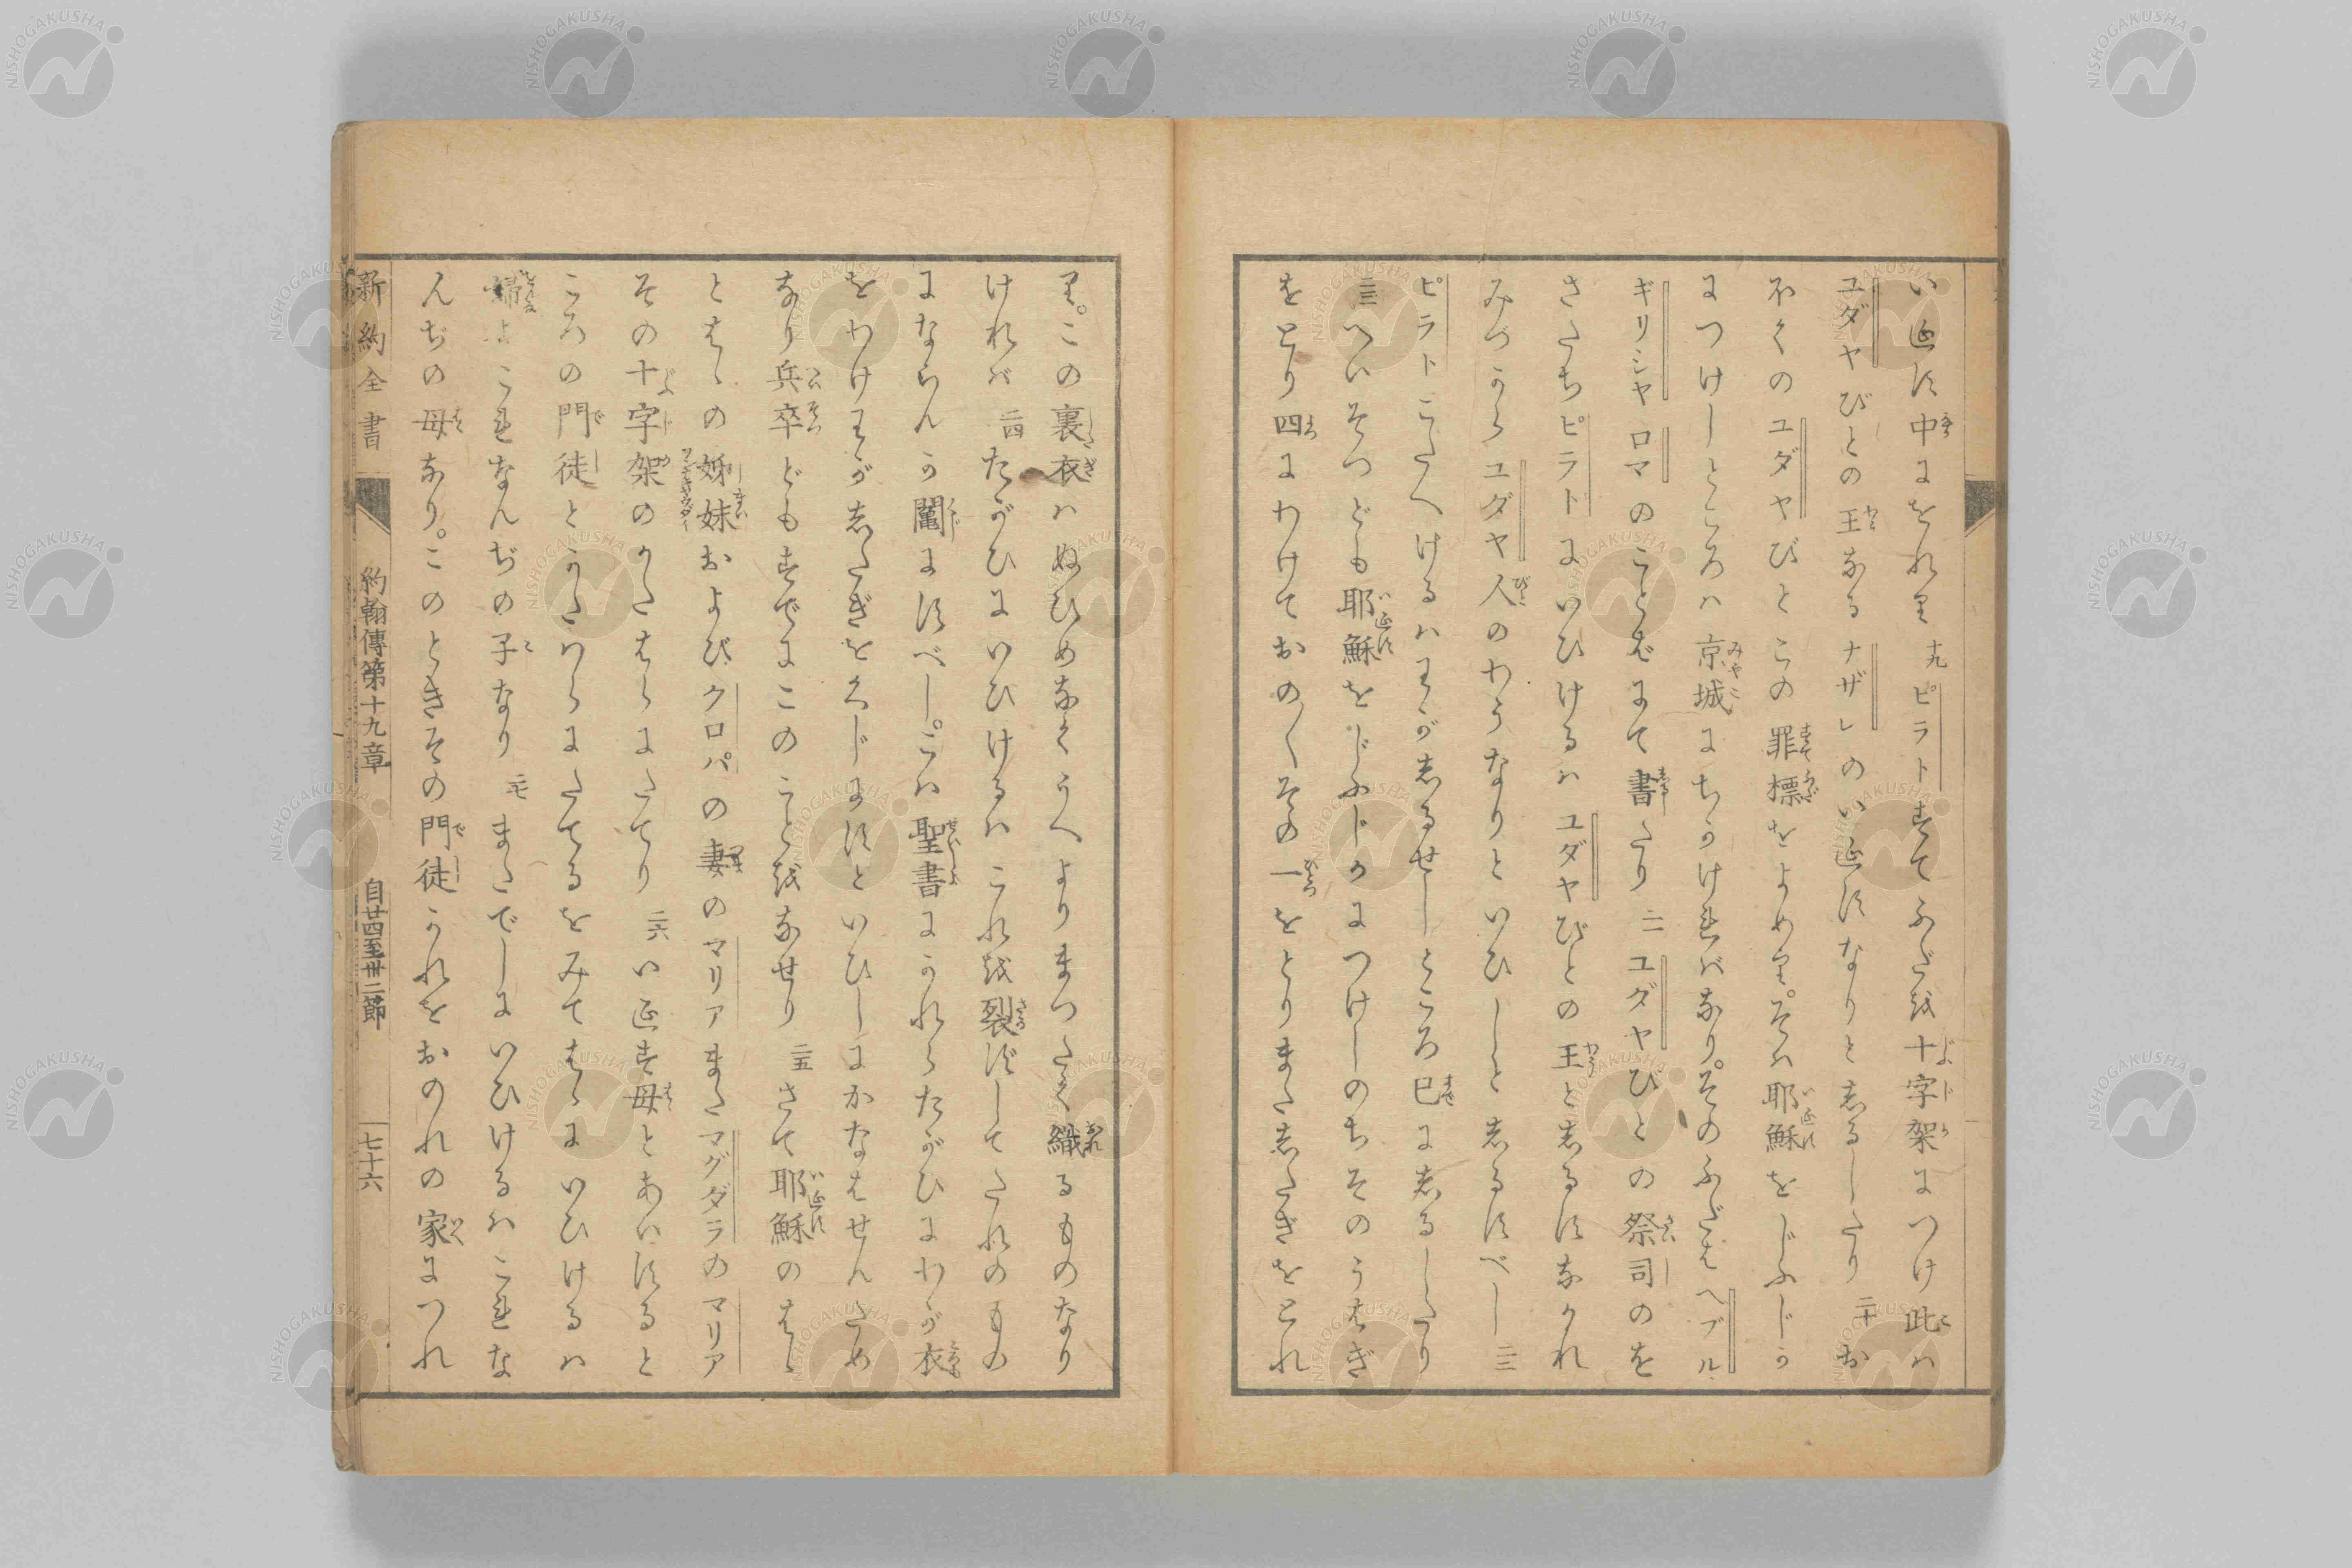 いゑす中にをれり 十九 ピラトすてふだを十字架につけ此は
ユダヤびとの王なるナザレのいゑすなりとしるしたり 二十 お
ほくのユダヤびとこの罪標をよめり。そは耶穌をじふじか
につけしところは京城にちかければなり。そのふだはヘブル
ギリシヤ ロマのことばにて書たり 二一 ユダヤひとの祭司のを
さたちピラトにいひけるはユダヤびとの王としるすなかれ
みづからユダヤ人のわうなりといひしとしるすべし 二二
ピラトこたへけるはわがしるせしところ已にしるしたり
二三 へいそつども耶穌をじふじかにつけしのちそのうはぎ
をとり四にわけておの〱その一をとりまたしたぎをとれ
り。この裏衣はぬひめなくうへよりまつたく織るものなり
ければ 二四 たがひにいひけるはこれを裂ずしてたれのもの
にならんか鬮にすべし。こは聖書にかれらたがひにわが衣
をわけわがしたぎをくじにすといひしにかなはせんため
なり兵卒どもすでにこのことをなせり 二五 さて耶穌のはゝ
とはゝの姊妹およびクロパの妻のマリアまたマグダラのマリア
その十字架のかたはらにたてり 二六 いゑす母とあいすると
ころの門徒とかたはらにたてるをみてはゝにいひけるは
婦よこれなんぢの子なり 二七 またでしにいひけるはこれな
んぢの母なり。このときその門徒かれをおのれの家につれ
新約全書 約翰傳第十九章 自廿四至卅二節 七十六